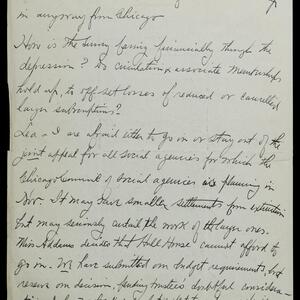 in anyway from Chicago
How is The Survey faring financially through the
depression? Do circulation, associate memberships
hold up, to off set losses of reduced or cancelled
larger subscriptions?
Lea - I am afraid either to go on or stay out of the
joint appeal for all social agencies for which the
Chicago Council of Social agencies is planning in
Nov. It may have some
but may seriously curtail the work of the larger ones.
Miss Addams decided that Hull House cannot afford to
go in. We have submitted our budget requirements, but
reserve our decision, pending trustees doubtful considera-